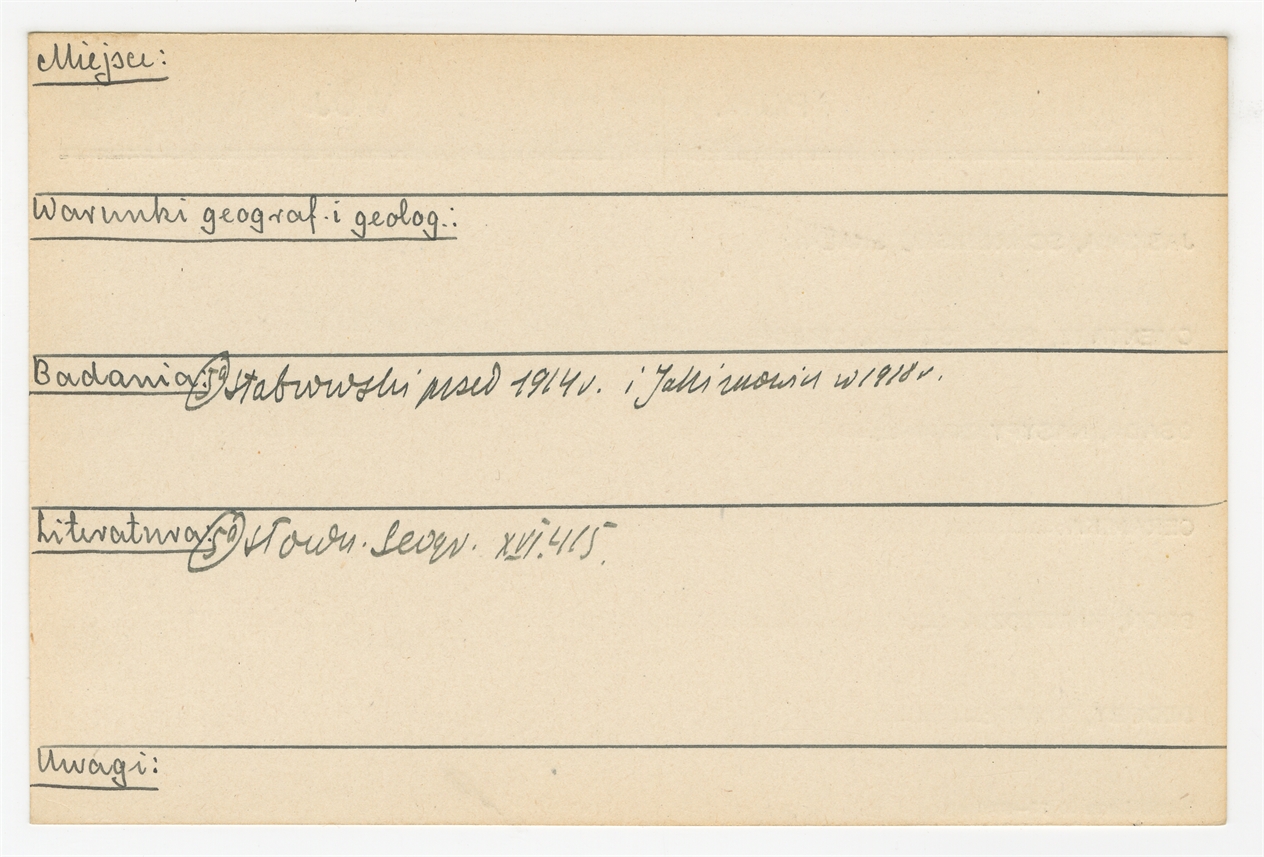 Miejsce:
Warunki geograf. i geolog.:
Badania: 59 Stabrowski przed 1914 r. i Jakimowicz w 1918 r.
Literatura: 59 Słown. Geogr. XVI. 415.
Uwagi: